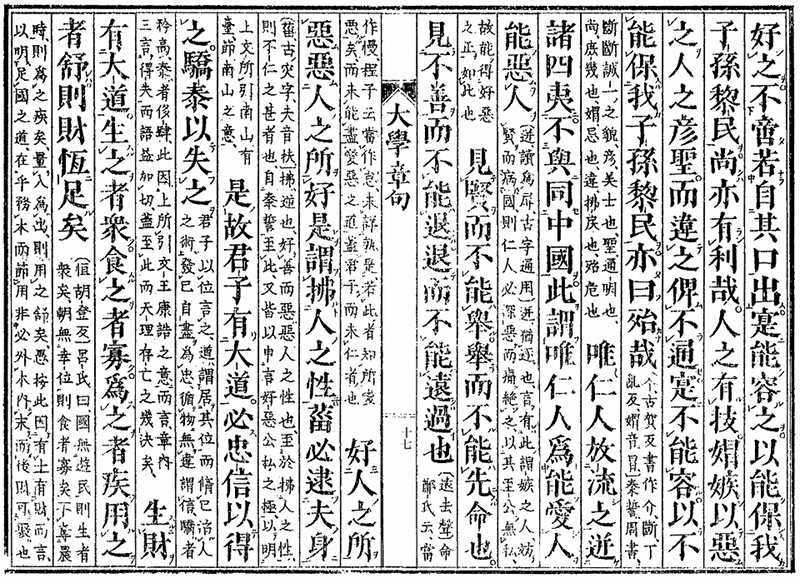 好之不啻若自其口出寔能容之以能保我
子孫黎民尚亦有利哉人之有技媢嫉以惡
之人之彥聖而違之俾不通寔不能容以不
能保我子孫黎民亦曰殆哉
个古賀反書作介斷丁
亂反媢音冒 秦誓周書
斷斷誠一之貌彥美士也聖通明也
尚庶幾也媢忌也違拂戾也殆危也
唯仁人放流之迸
諸四夷不與同中國此謂唯仁人爲能愛人
能惡人
迸讀爲屏古字通用 迸猶逐也言有此媢嫉之人妨
賢而病國則仁人必深惡而痛絶之以其至公無私
故能得好惡
之正如此也
見賢而不能舉舉而不能先命也
見不善而不能退退而不能遠過也
遠去聲 命
鄭氏云當
大學章句
十七
作慢程子云當作怠未詳孰是若此者知所愛
惡矣而未能盡愛惡之道蓋君子而未仁者也
好人之所
惡惡人之所好是謂拂人之性菑必逮夫身
菑古災字夫音扶 拂逆也好善而惡惡人之性也至於拂人之性
則不仁之甚者也自秦誓至此又皆以申言好惡公私之極以明
上文所引南山有
臺節南山之意
是故君子有大道必忠信以得
之驕泰以失之
君子以位言之道謂居其位而脩己治人
之術發己自盡爲忠循物無違謂信驕者
矜高泰者侈肆此因上所引文王康誥之意而言章內
三言得失而語益加切蓋至此而天理存亡之幾決矣
生財
有大道生之者衆食之者寡爲之者疾用之
者舒則財恆足矣
恆胡登反 呂氏曰國無遊民則生者
衆矣朝無幸位則食者寡矣不奪農
時則爲之疾矣量入爲出則用之舒矣愚按此因有土有財而言
以明足國之道在乎務本而節用非必外本內末而後財可聚也